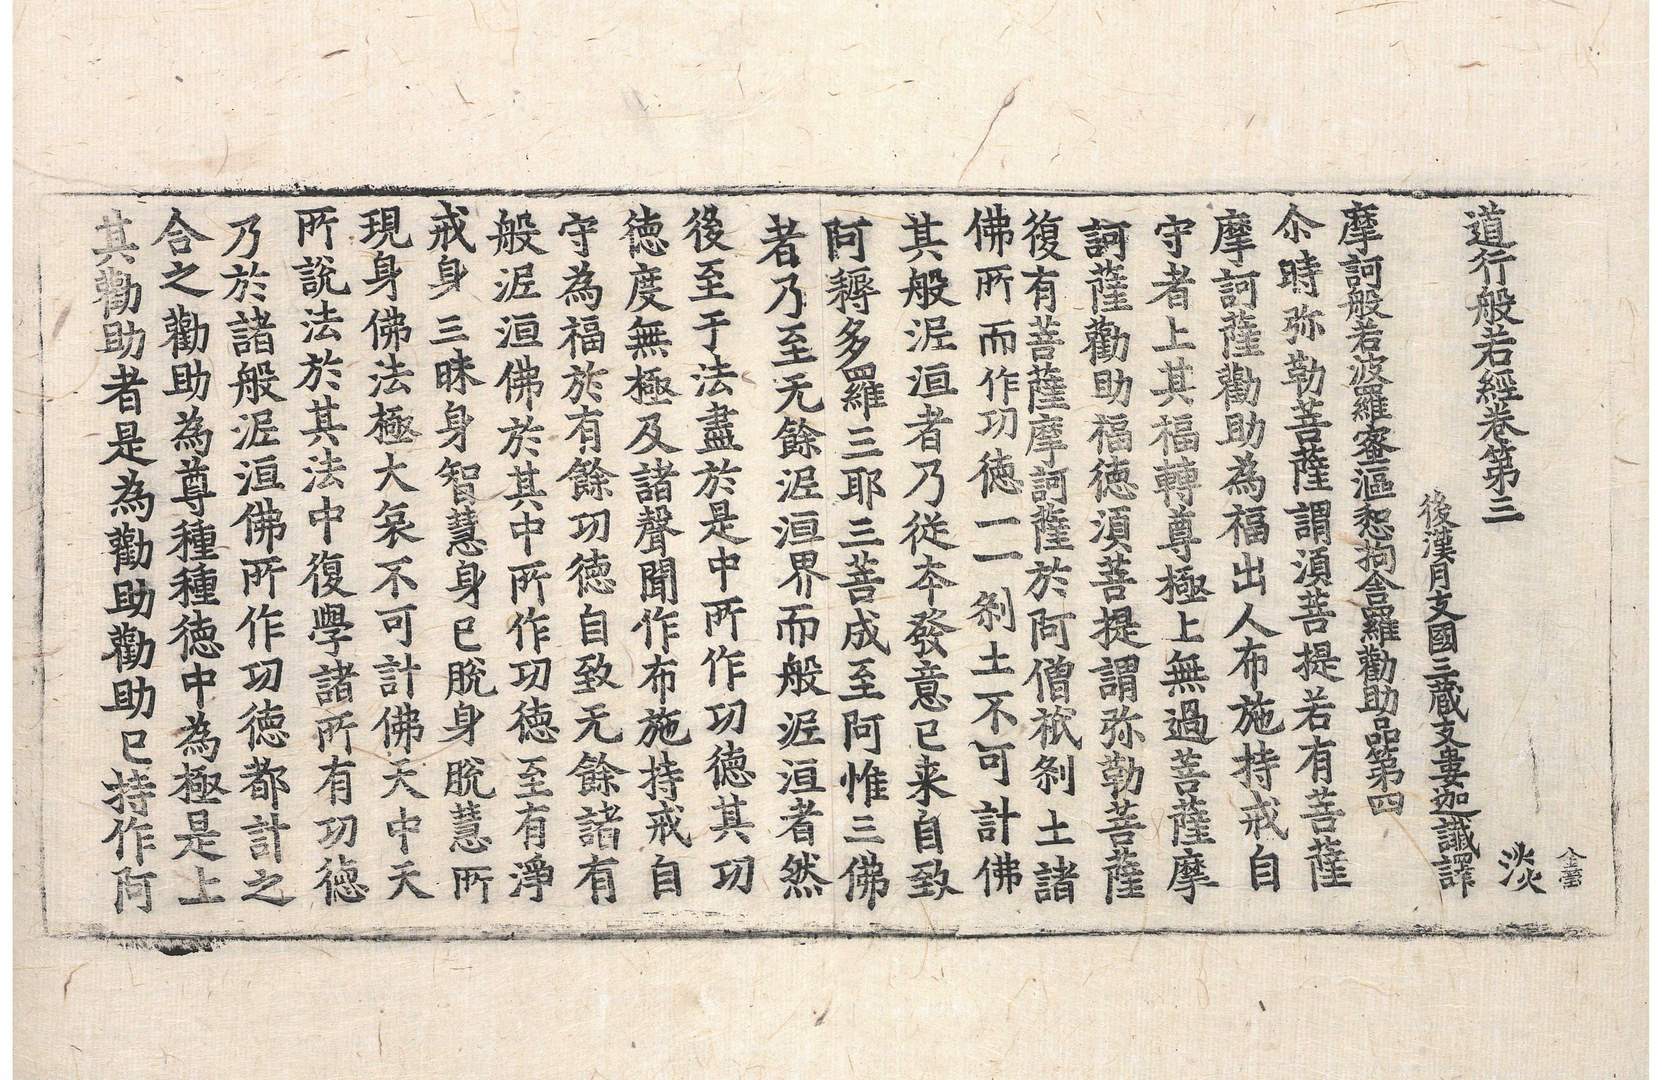 道行般若經卷第三
淡
後漢月支國三藏支婁迦讖譯
摩訶般若波羅蜜漚惒拘舍羅勸助品第四
尒時弥勒菩薩謂須菩提若有菩薩
摩訶薩勸助為福出人布施持戒自
守者上其福轉尊極上無過菩薩摩
訶薩勸助福德須菩提謂弥勒菩薩
復有菩薩摩訶薩於阿僧祇剎土諸
佛所而作功德一一剎土不可計佛
其般泥洹者乃從夲發意已来自致
阿耨多羅三耶三菩成至阿惟三佛
者乃至无餘泥洹界而般泥洹者然
後至于法盡於是中所作功德其功
德度無極及諸聲聞作布施持戒自
守為福於有餘功德自致无餘諸有
般泥洹佛於其中所作功德至有淨
戒身三昧身智慧身已脫身脫慧所
現身佛法極大哀不可計佛天中天
所說法於其法中復學諸所有功德
乃於諸般泥洹佛所作功德都計之
合之勸助為尊種種德中為極是上
其勸助者是為勸助勸助已持作阿